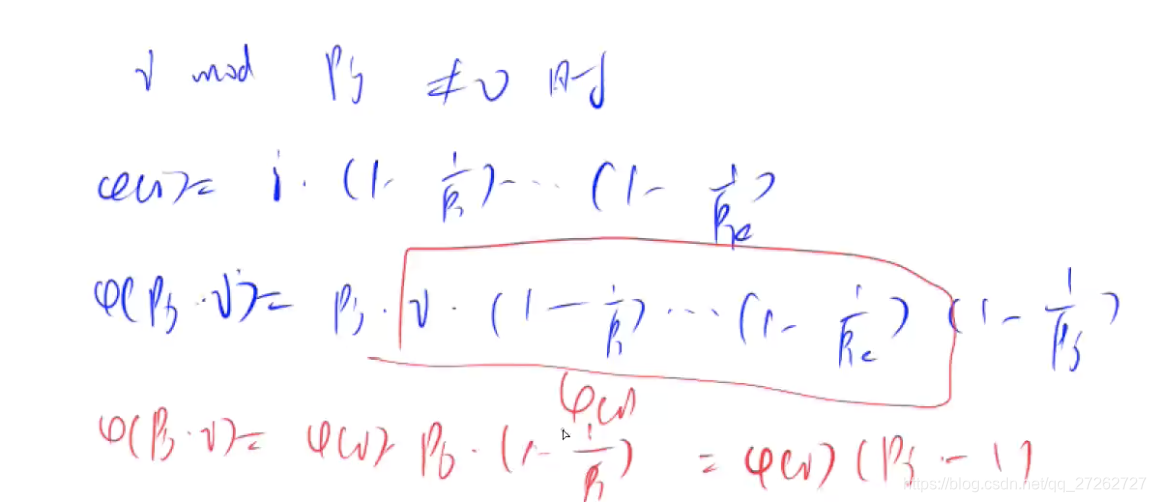 i mod Pj ≠ 0 时
φ(i) = i · (1 - 1/P1) ··· (1 - 1/Pk)
φ(Pj · i) = Pj · i · (1 - 1/P1) ··· (1 - 1/Pk) (1 - 1/Pj)
φ(i)
φ(Pj · i) = φ(i) Pj · (1 - 1/Pj) = φ(i) (Pj - 1)
https://blog.csdn.net/qq_27262727